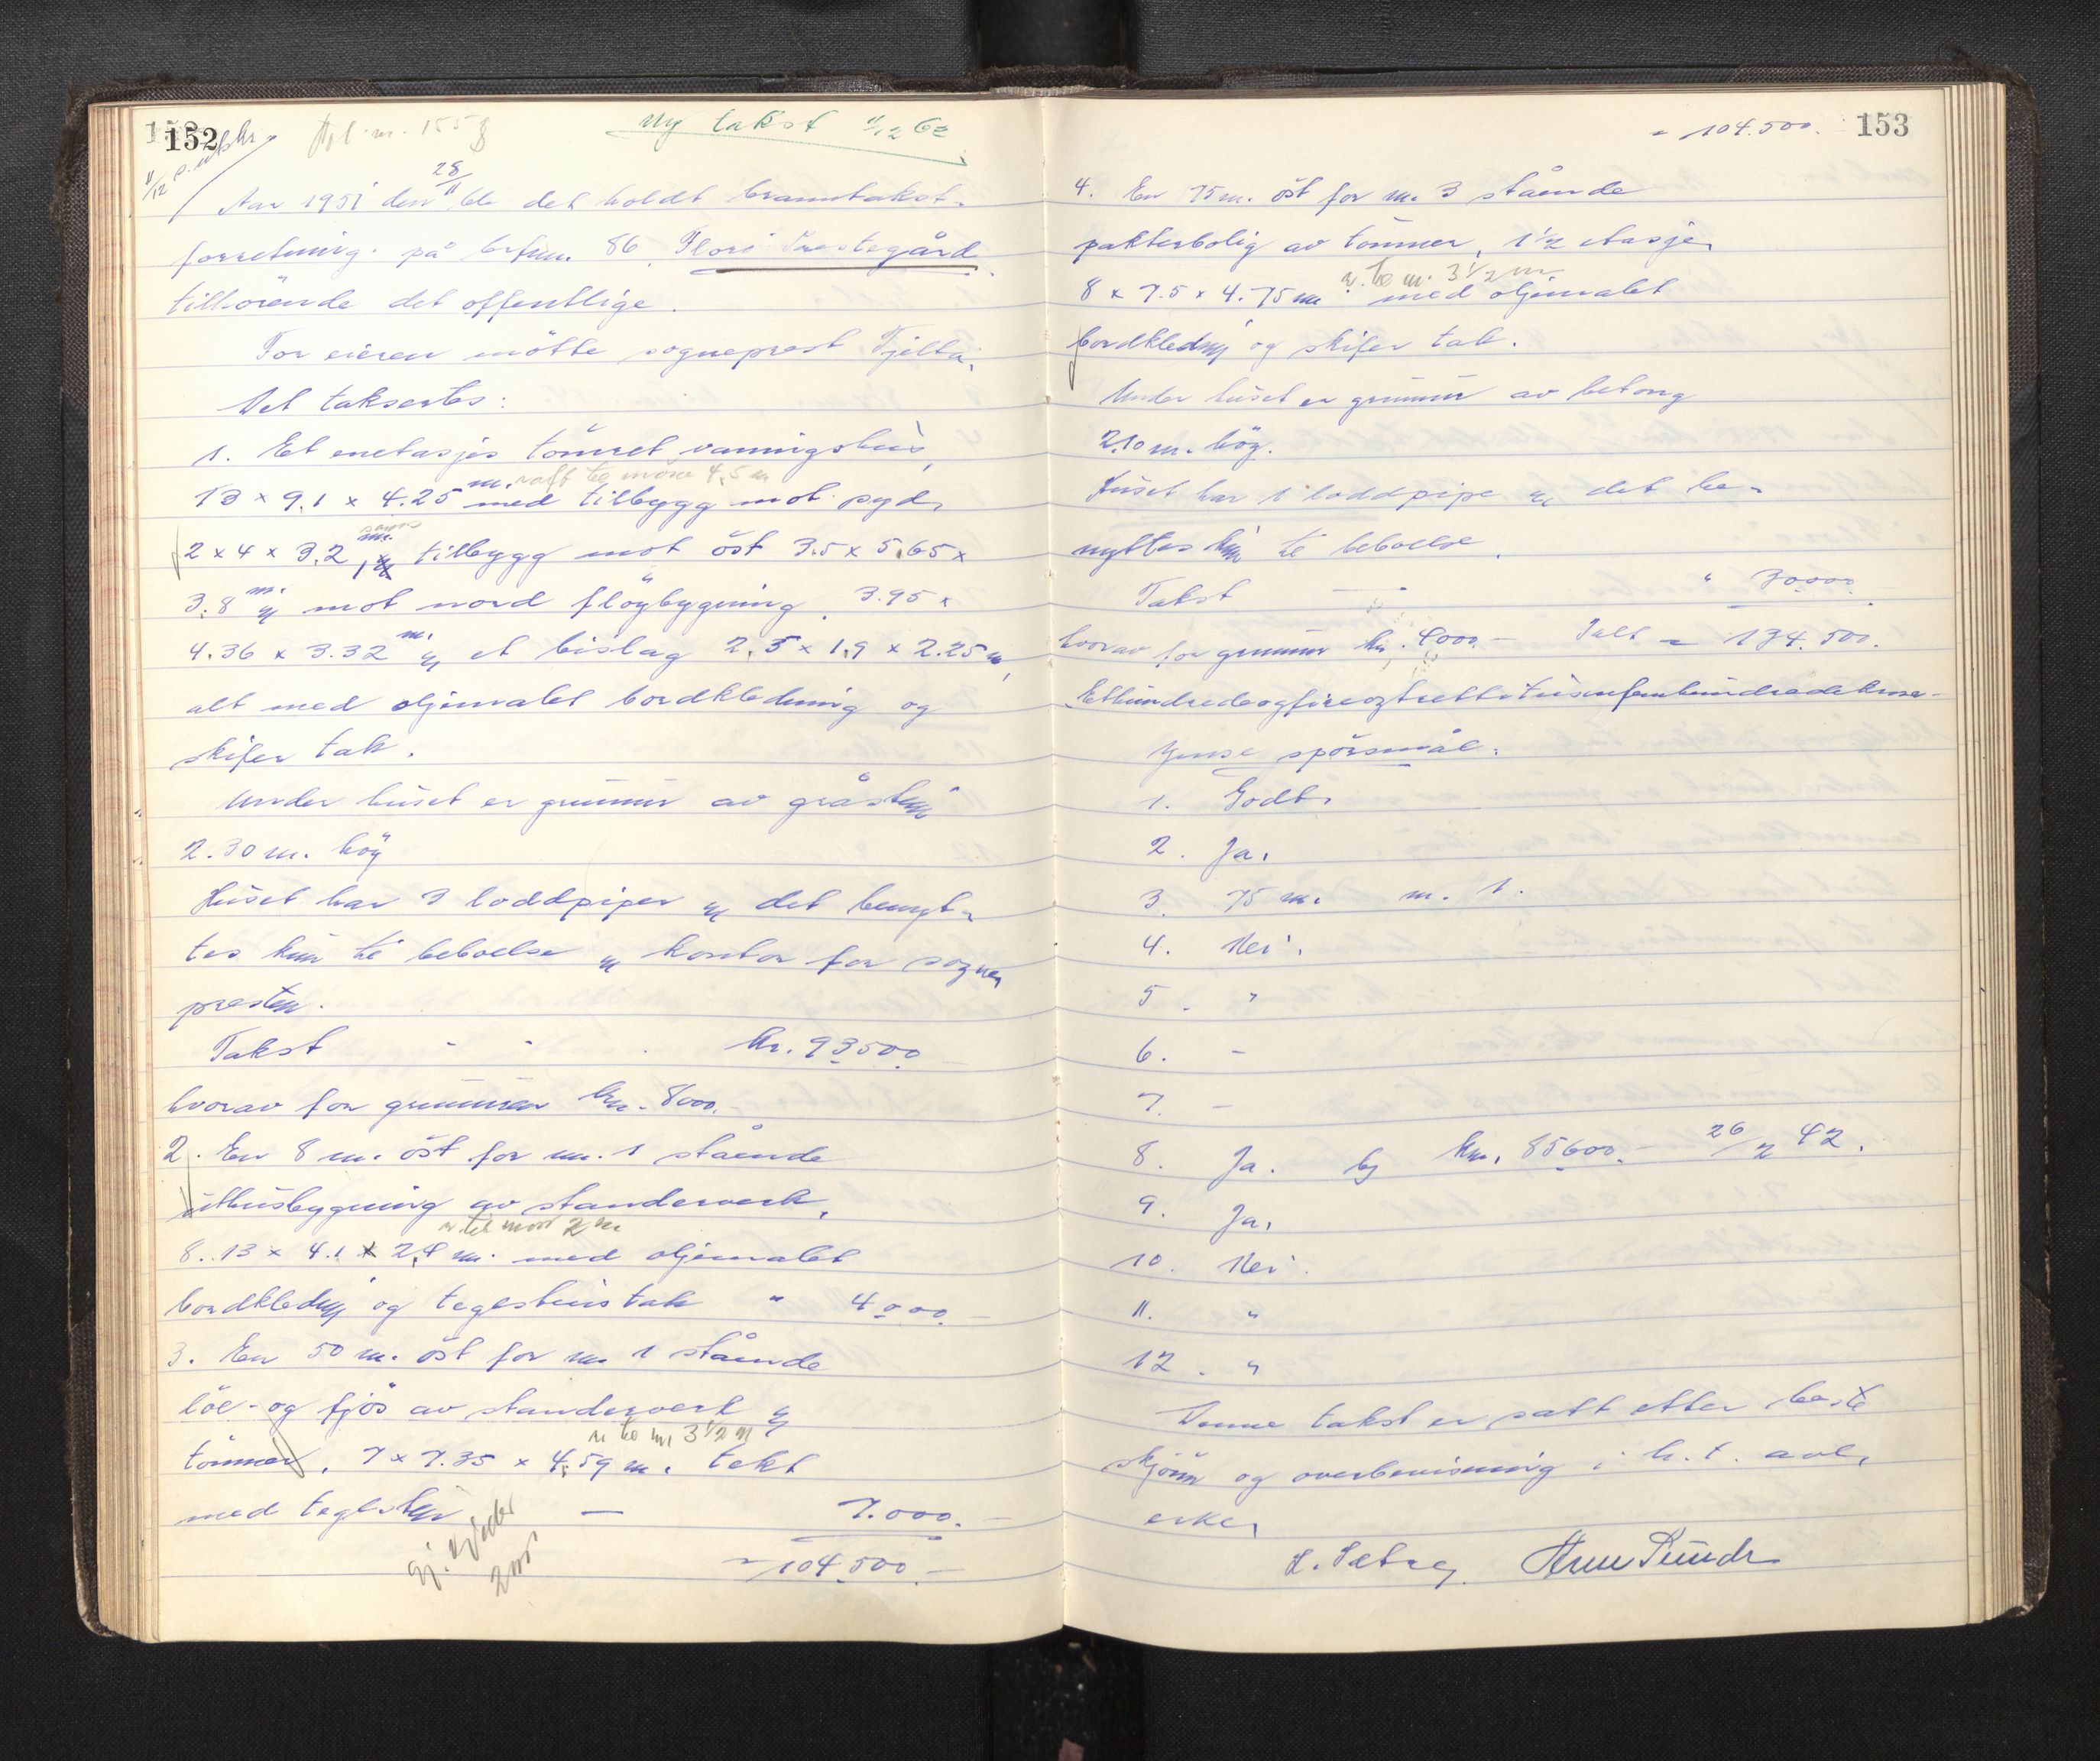 152
Ny takst 1/12 62
28/11
Aar 1951 den ble det holdt branntakst-
forretning på brfnr. 86 Florö Prestegård
tilhörende det offentlige.
For eieren mötte sogneprest
Det taksertes:
1. Et enetasjes tömret vaaningshus,
13 x 9,1 x 4.25 m. med tilbygg mot syd,
2 x 4 x 3,2 m., tilbygg mot öst 3,5 x 5,65 x
3,8 m. og mot nord flöybygning 3.95 x
4,36 x 3.32 m. og et bislag 2,5 x 1,9 x 2.25 m,
alt med oljemalet bordkledning og
skifer tak.
Under huset er grunmur av gråstein
2.30 m. höy
Huset har 3 loddpiper og det benyt-
tes kun til beboelse og kontor for sogne-
presten.
Takst - - kr. 93500
hvorav for grunmuren kr. 8000.-
2. En 8 m. öst for nr. 1 stående
uthusbygning av standerverk,
8.13 x 4.1 x 2,4 m. med oljemalet
bordkledning og teglsteinstak " 4000.-
3. En 50 m. öst for nr. 1 stående
löe- og fjös av standerverk og
tömmer, 7 x 7.35 x 4,59 m. tekt
med teglstein — 7.000.-
104.500.-
153
104.500.
4. En 75 m. öst for nr. 3 stående
pakterbolig av tömmer, 1 1/2 etasje,
8 x 7.5 x 4.75 m med oljemalet
bordkledning og skifer tak.
Under huset er grunmur av betong
2.10 m. höy.
Huset har 1 loddpipe og det be-
nyttes kun til beboelse.
Takst - " 30000
hvorav for grunmur kr. 4000.- Ialt 134.500.
Etthundredeogfireogtrettitusenfemhundredekroner-
Ymse spörsmål:
1. Godt.
2. Ja.
3. 75 m. nr. 1.
4. Nei.
5. "
6. -
7. -
8. Ja. kr. 85600.- 26/2 42.
9. Ja.
10. Nei.
11. "
12. "
Denne takst er satt etter beste
skjönn og overbevisning i h.t. avl.
erkl.